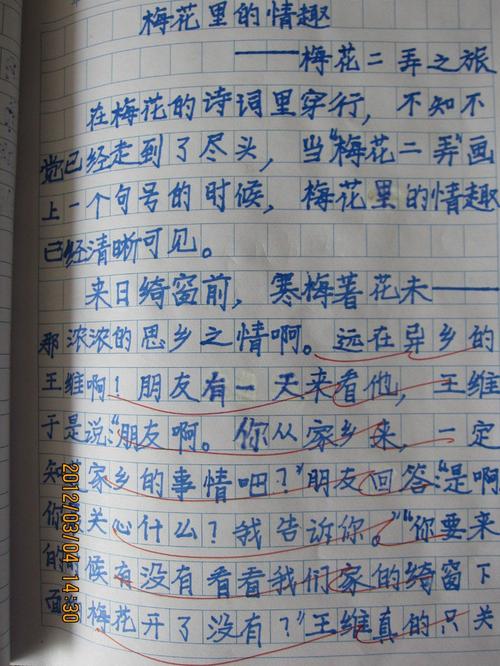 梅花里的情趣
——梅花二弄之旅
在梅花的诗词里穿行，不知不
觉已经走到了尽头，当“梅花二弄”画
上一个句号的时候，梅花里的情趣
已经清晰可见。
来日绮窗前，寒梅著花未——
那浓浓的思乡之情啊。远在异乡的
王维啊！朋友有一天来看他，王维
于是说“朋友啊。你从家乡来，一定
知道家乡的事情吧？”朋友回答“是啊
你关心什么？我告诉你。”“你要来
的时候有没有看看我们家的绮窗下
面梅花开了没有？”王维真的只关
2012/03/04 14:30